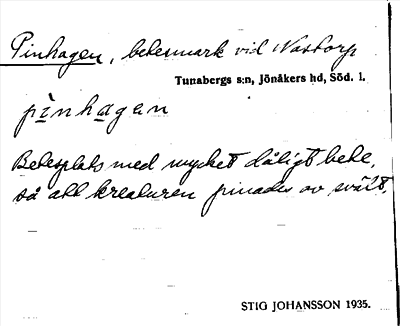 Pinhagen, betesmark vid Nastorp
Tunabergs s:n, Jönåkers hd, Söd. l.
pinhagen
Betesplats med mycket dåligt bete,
så att kreaturen pinades av svält.
STIG JOHANSSON 1935.